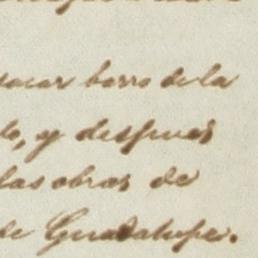 sacar barro de la
lo, y despues
las obras de
de Guadalupe.